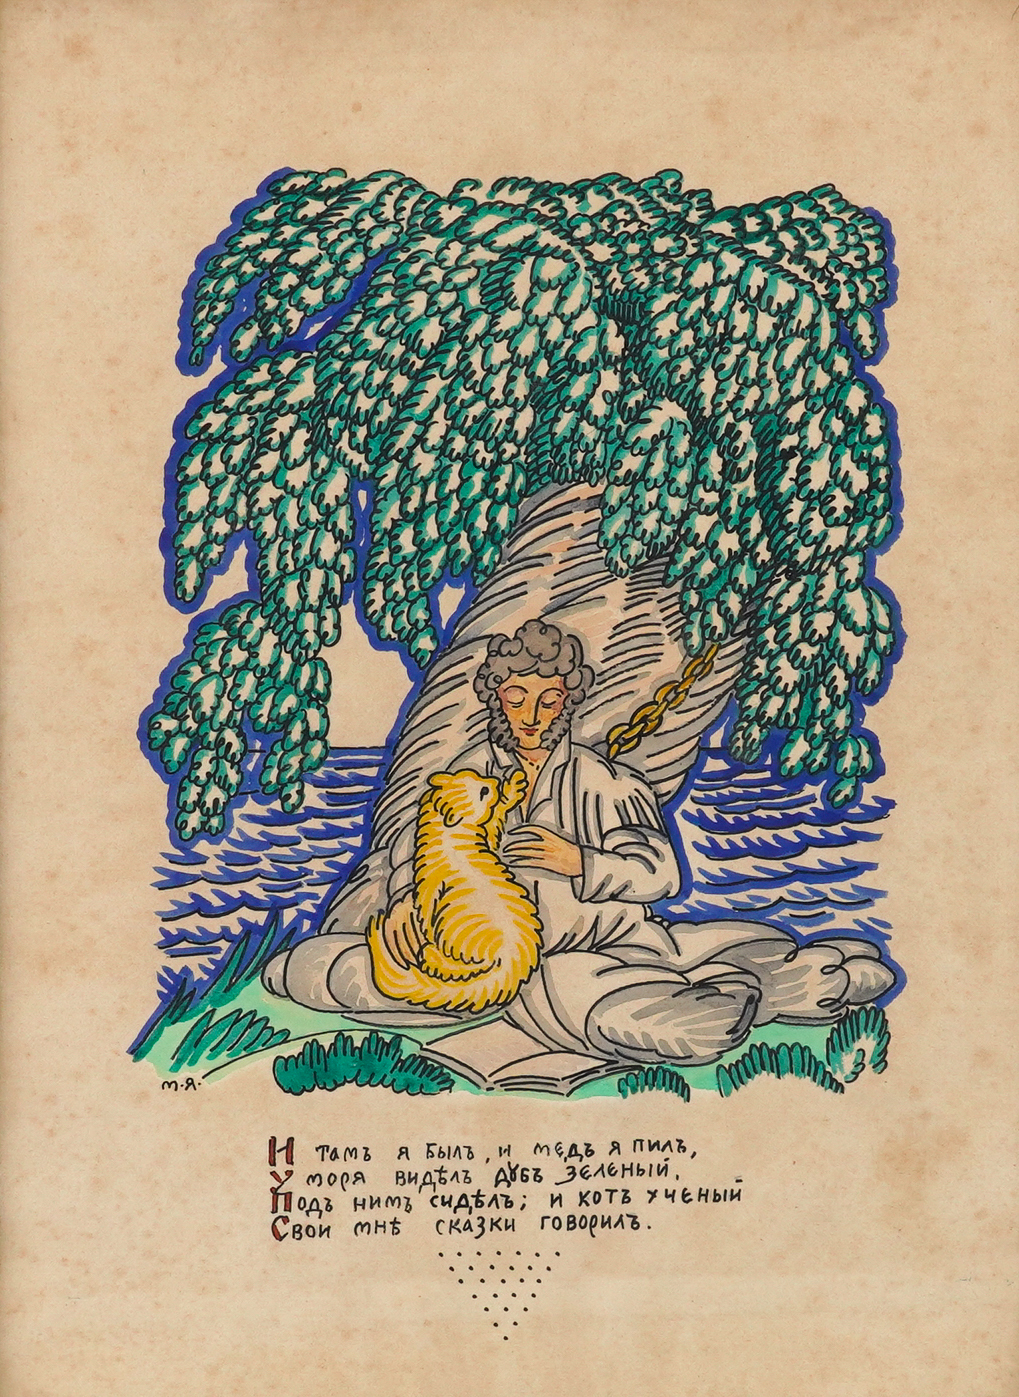 М.Я.
И тамъ я былъ, и медъ я пилъ,
У моря видѣлъ дубъ зеленый,
Подъ нимъ сидѣлъ; и котъ ученый
Свои мнѣ сказки говорилъ.